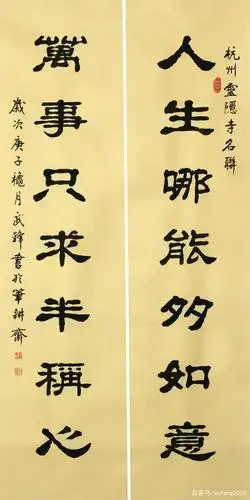 杭州靈隱寺名聯
人生哪能多如意
萬事只求半稱心
歲次庚子穐月武鋒書於筆耕齋
百家号/wufeng2020